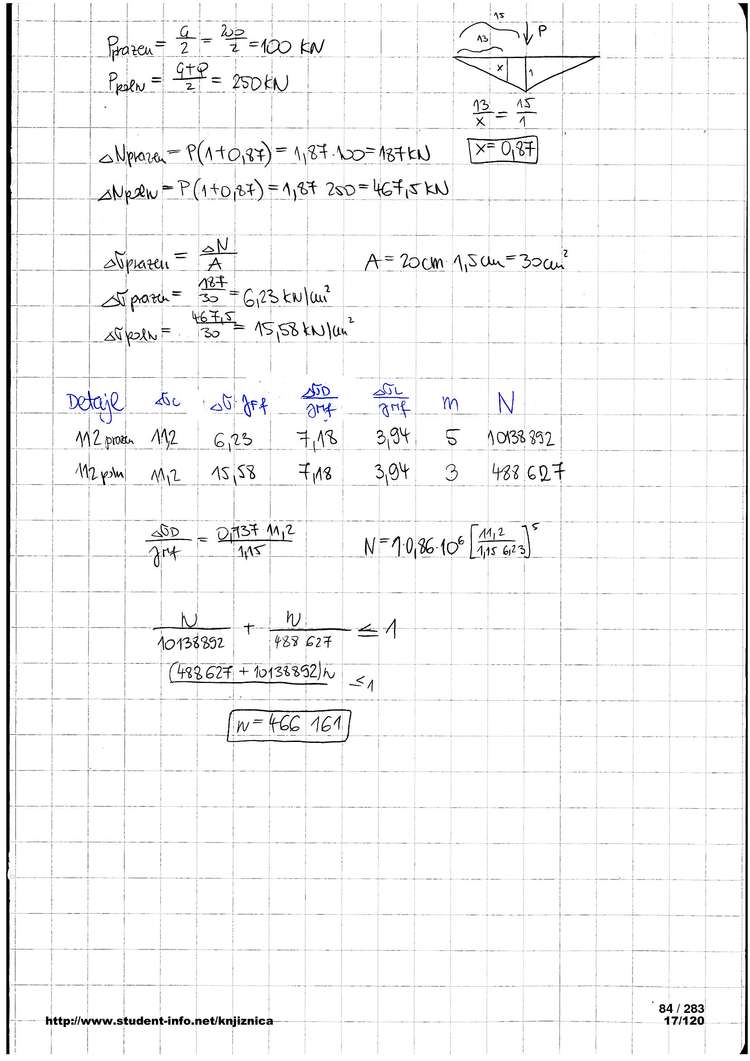 Pprazen = G/2 = 200/2 = 100 KN
Ppoln = G+Q/2 = 250KN
15
13
P
x
1
13/x = 15/1
x = 0,87
ΔNprazen = P(1+0,87) = 1,87·100 = 187 KN
ΔNpoln = P(1+0,87) = 1,87 250 = 467,5 KN
Δσprazen = ΔN/A
A = 20cm · 1,5cm = 30cm²
Δσprazen = 187/30 = 6,23 KN/cm²
Δσpoln = 467,5/30 = 15,58 KN/cm²
Detajl Δσc Δσ·γFf ΔσD/γMf ΔσL/γMf m N
112 prazen 11,2 6,23 7,18 3,94 5 10138892
112 poln 11,2 15,58 7,18 3,94 3 488 627
ΔσD/γMf = 0,737 11,2/1,15
N = 1·0,86·10⁶ [11,2/1,15 6,23]⁵
n/10138892 + n/488 627 ≤ 1
(488 627 + 10138892)n ≤ 1
n = 466 161
84 / 283
http://www.student-info.net/knjiznica
17/120